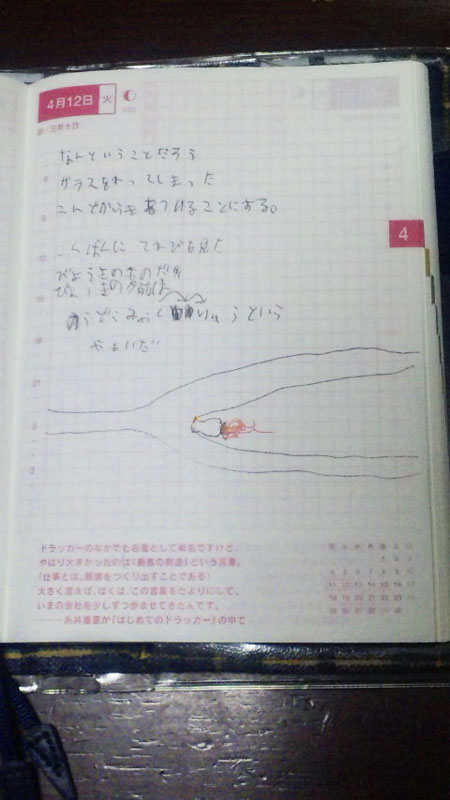 4月12日 火
旧・三月十日
4
なんということだろう
ガラスをわってしまった
こんどからきをつけることにする。
こんばんに てれびを見た
びょうきのものだ
びょうきの名前は
のうどうみゃく
という
やまいだ
ドラッカーのなかでも名言として有名ですけど、
やはり大きかったのは「顧客の創造」という言葉。
「仕事とは、顧客をつくり出すことである」
大きく言えば、ぼくは、この言葉をたよりにして、
いまの会社を少しずつ歩ませてきたんです。
——糸井重里が『はじめてのドラッカー』の中で